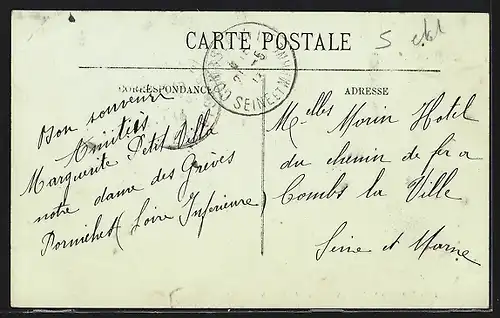 CARTE POSTALE
CORRESPONDANCE
ADRESSE
SEINE ET M
Bon souvenir
Amitiés
Marguerite Petit Villa
notre dame des Grèves
Pornichet (Loire Inférieure)
Melles Morin Hotel
du chemin de fer a
Combs la Ville
Seine et Marne